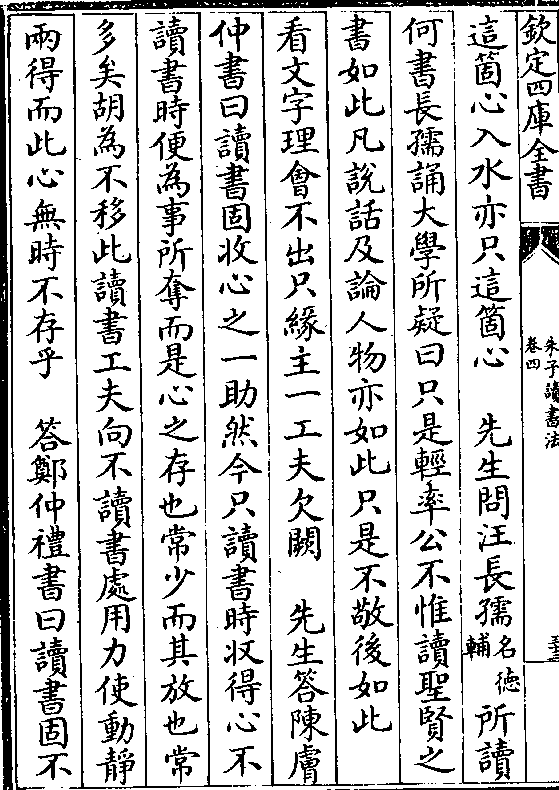 欽定四庫全書
朱子讀書法
卷四
這箇心入水亦只這箇心　先生問汪長孺名德輔所讀
何書長孺誦大學所疑曰只是輕率公不惟讀聖賢之
書如此凡說話及論人物亦如此只是不敬後如此
看文字理會不出只緣主一工夫欠闕　先生答陳膚
仲書曰讀書固收心之一助然今只讀書時收得心不
讀書時便為事所奪而是心之存也常少而其放也常
多矣胡為不移此讀書工夫向不讀書處用力使動靜
兩得而此心無時不存乎　答鄭仲禮書曰讀書固不